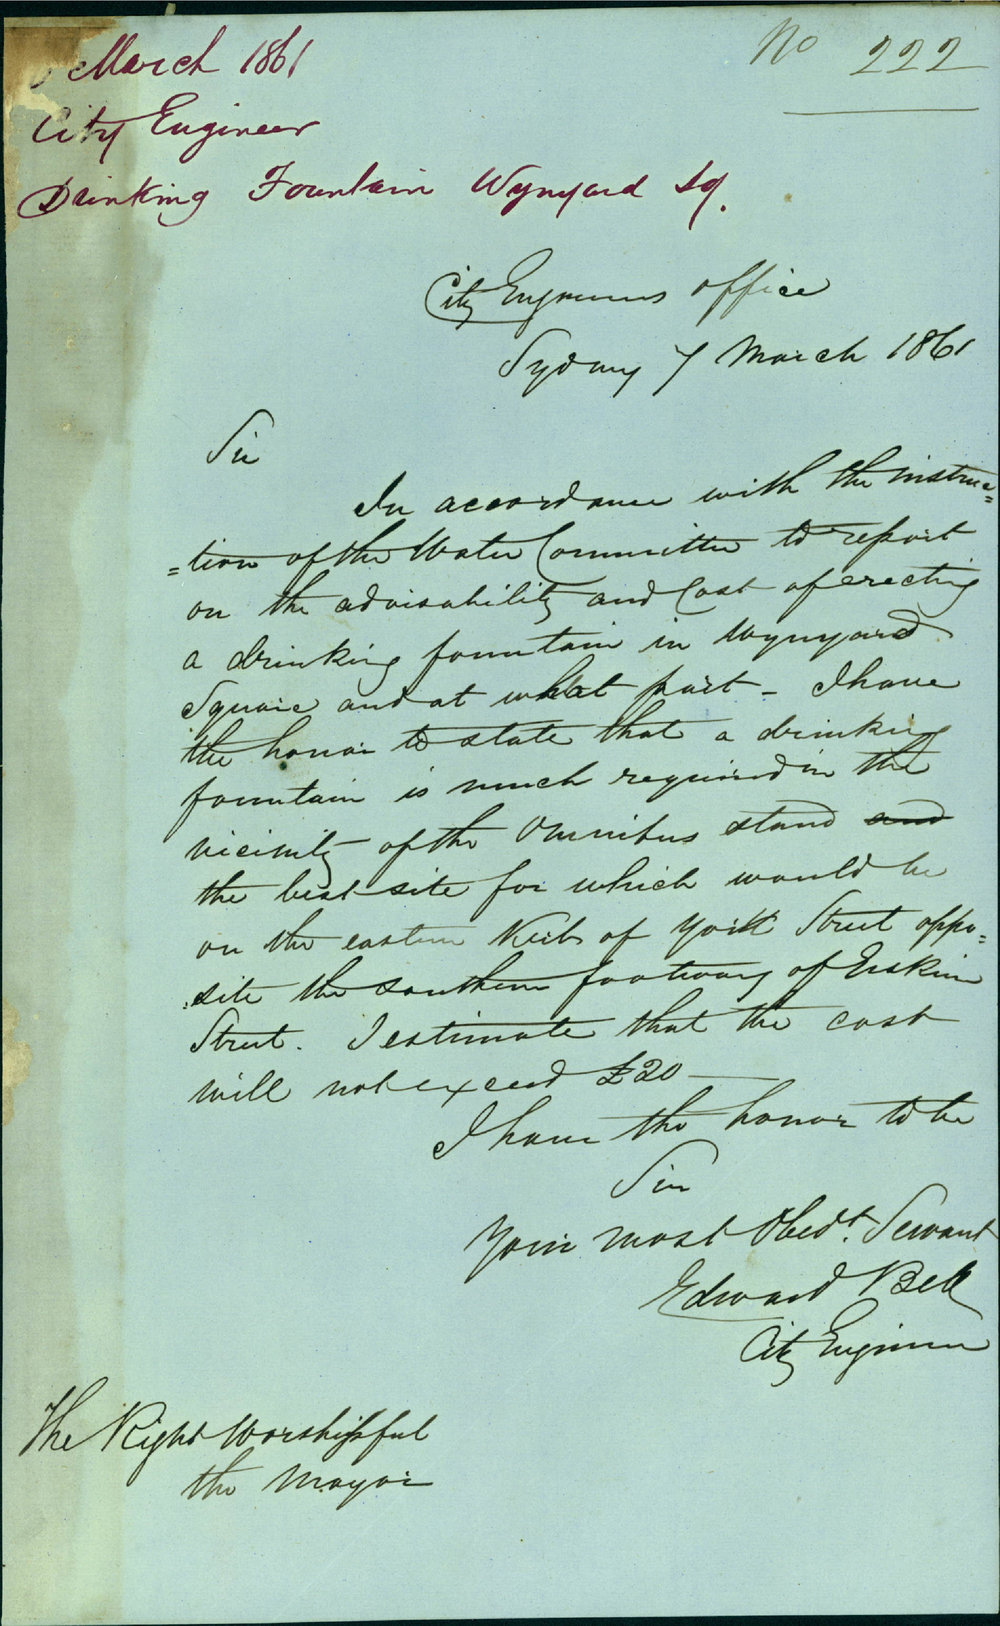 March 1861
No 222
City Engineer
Drinking Fountain Wynyard Sq.
City Engineers office
Sydney 7 March 1861
Sir
In accordance with the instruc=
=tion of the Water Committee to report
on the advisability and Cost of erecting
a drinking fountain in Wynyard
Square and at what part - I have
the honor to state that a drinking
fountain is much required in the
vicinity of the Omnibus stand and
the best site for which would be
on the eastern Kerb of York Street oppo=
=site the southern footway of Erskine
Street. I estimate that the cost
will not exceed £20 —
I have the honor to be
Sir
Your most Obedt. Servant
Edward Bell
City Engineer
The Right Worshipful
the Mayor